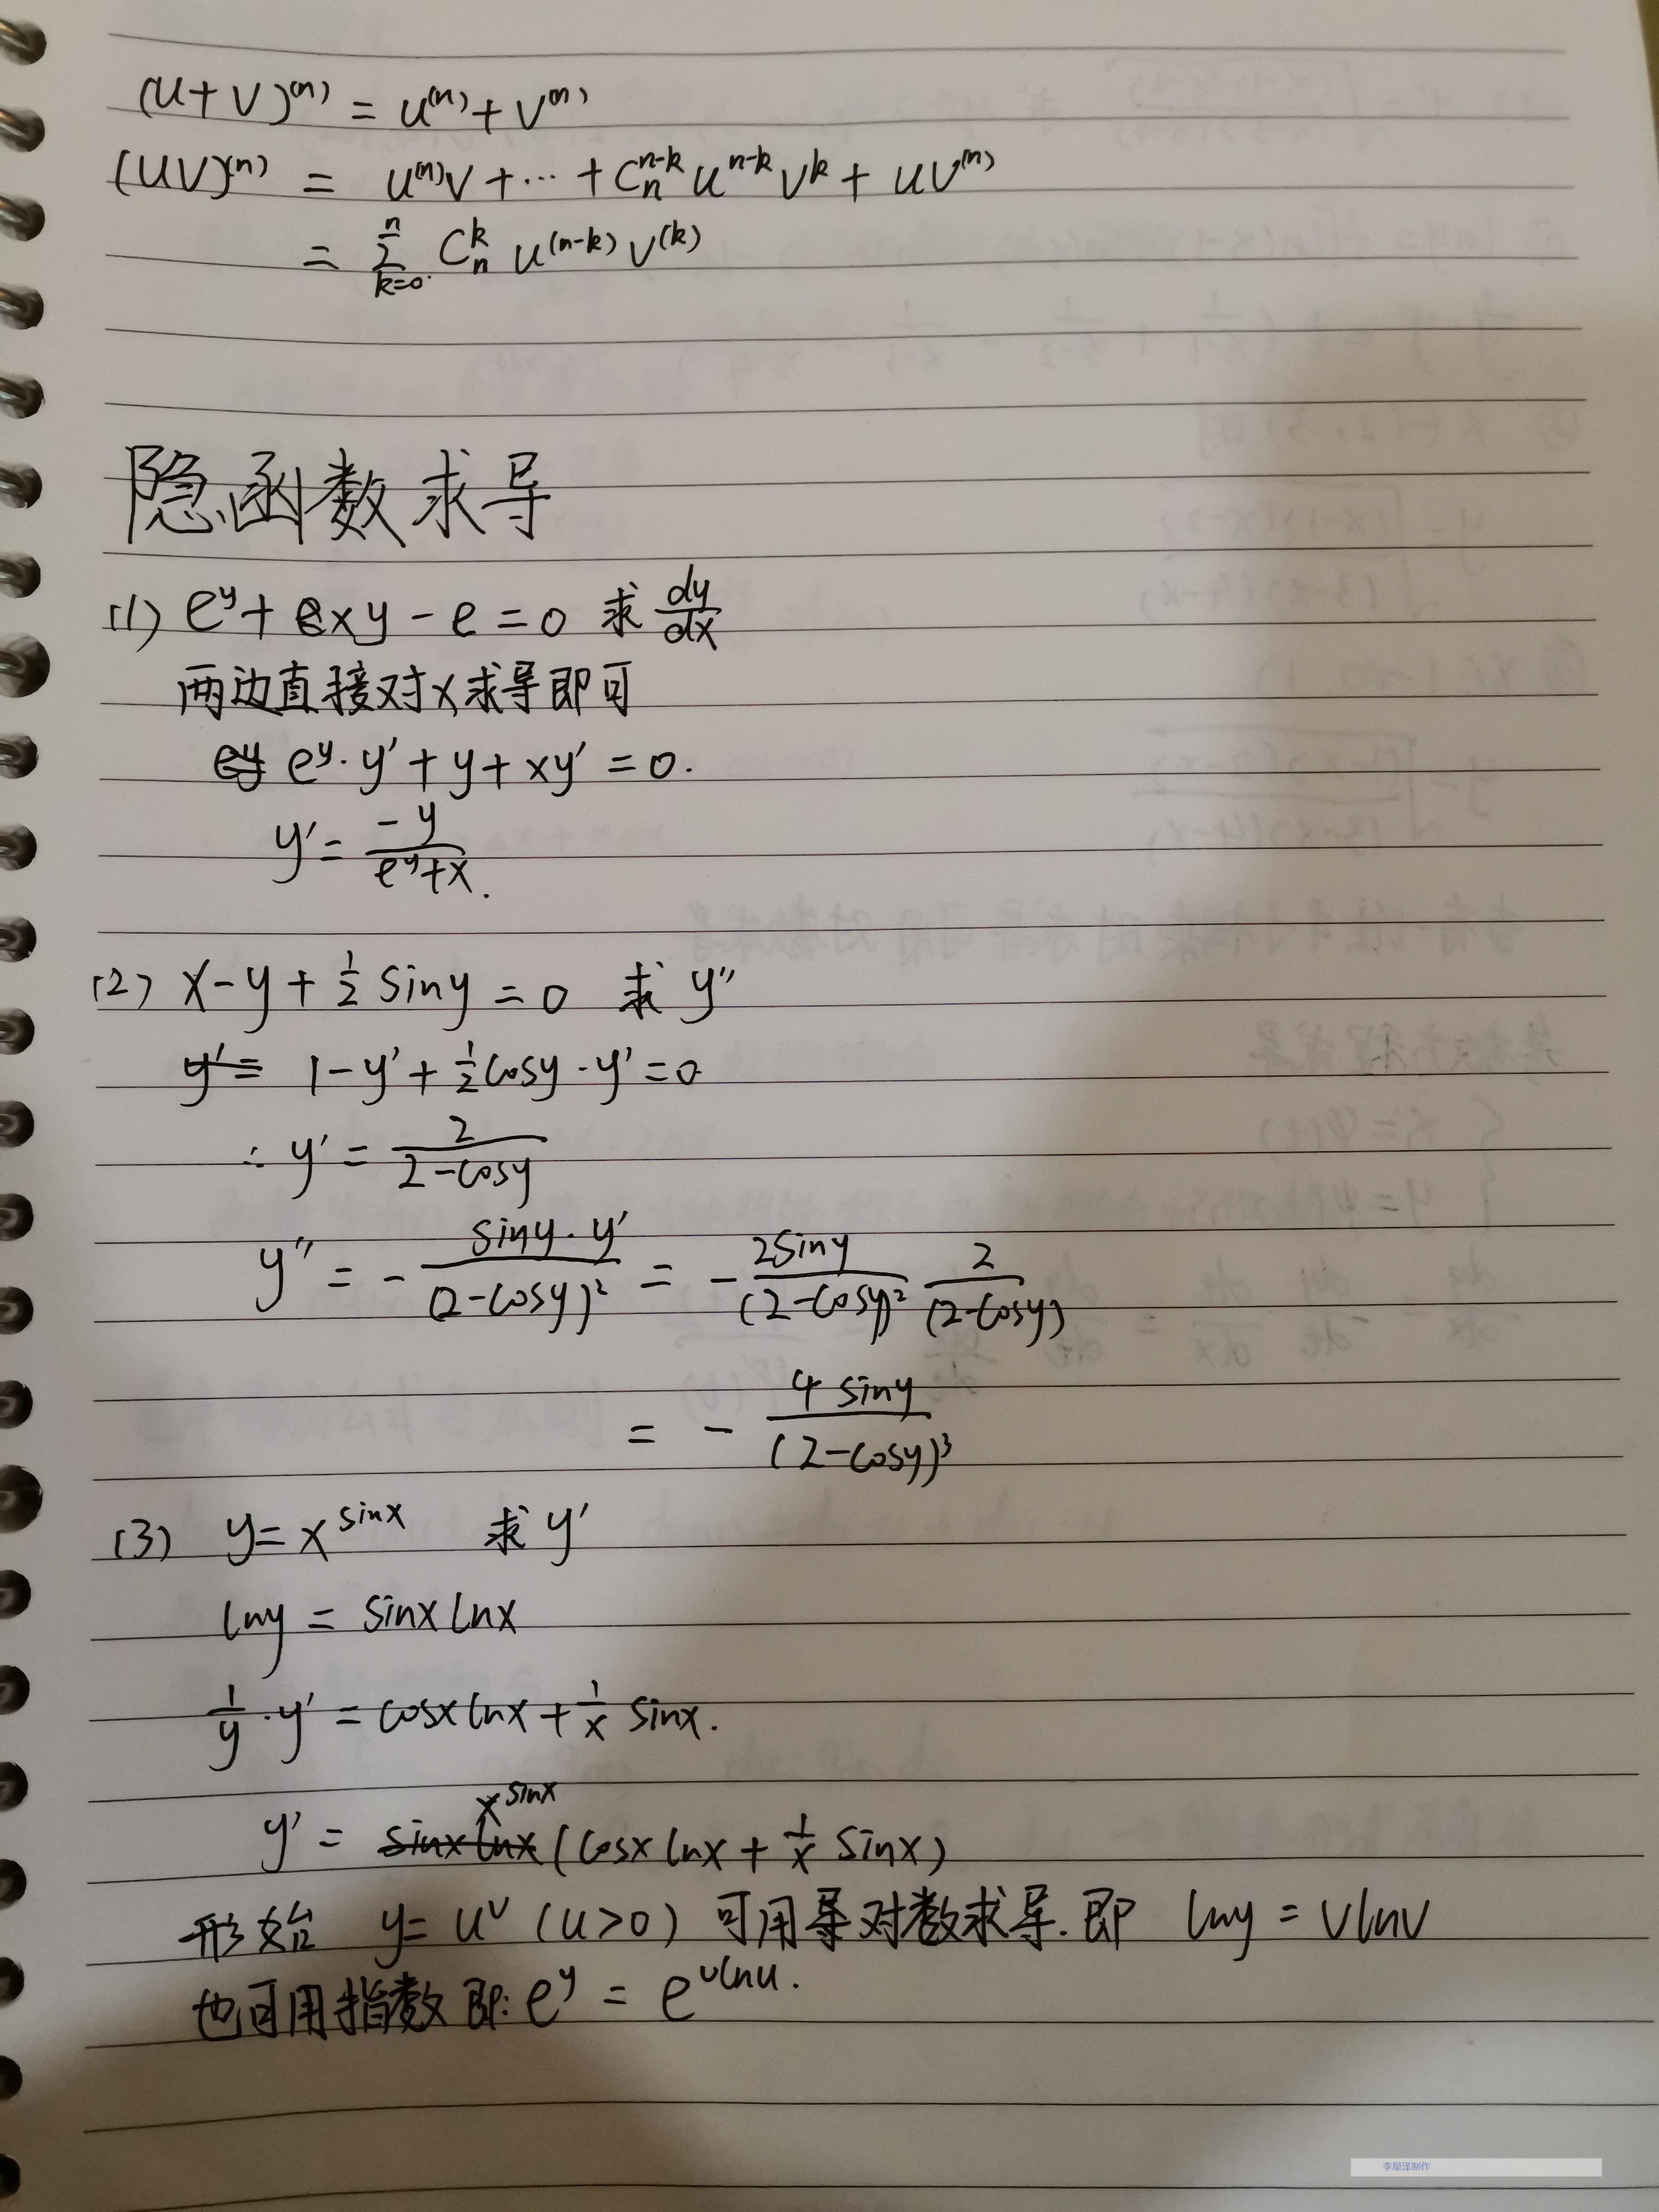 (u+v)⁽ⁿ⁾ = u⁽ⁿ⁾ + v⁽ⁿ⁾
(uv)⁽ⁿ⁾ = u⁽ⁿ⁾v + ⋯ + C_n^{n-k} u^{n-k} v^k + uv⁽ⁿ⁾
= \sum_{k=0}^{n} C_n^k u^{(n-k)} v^{(k)}
隐函数求导
(1) e^y + xy - e = 0 求 \frac{dy}{dx}
两边直接对x求导即可
e^y · y' + y + xy' = 0.
y' = \frac{-y}{e^y+x}.
(2) x - y + \frac{1}{2} siny = 0 求 y''
1 - y' + \frac{1}{2} cosy · y' = 0
∴ y' = \frac{2}{2-cosy}
y'' = - \frac{siny · y'}{(2-cosy)^2} = - \frac{2siny}{(2-cosy)^2} \frac{2}{(2-cosy)}
= - \frac{4 siny}{(2-cosy)^3}
(3) y = x^{sinx} 求 y'
lny = sinx lnx
\frac{1}{y} · y' = cosx lnx + \frac{1}{x} sinx.
y' = x^{sinx} (cosx lnx + \frac{1}{x} sinx)
形如 y = u^v (u>0) 可用对数求导. 即 lny = vlnv
也可用指数 即: e^y = e^{vlnu}.
李星泽制作